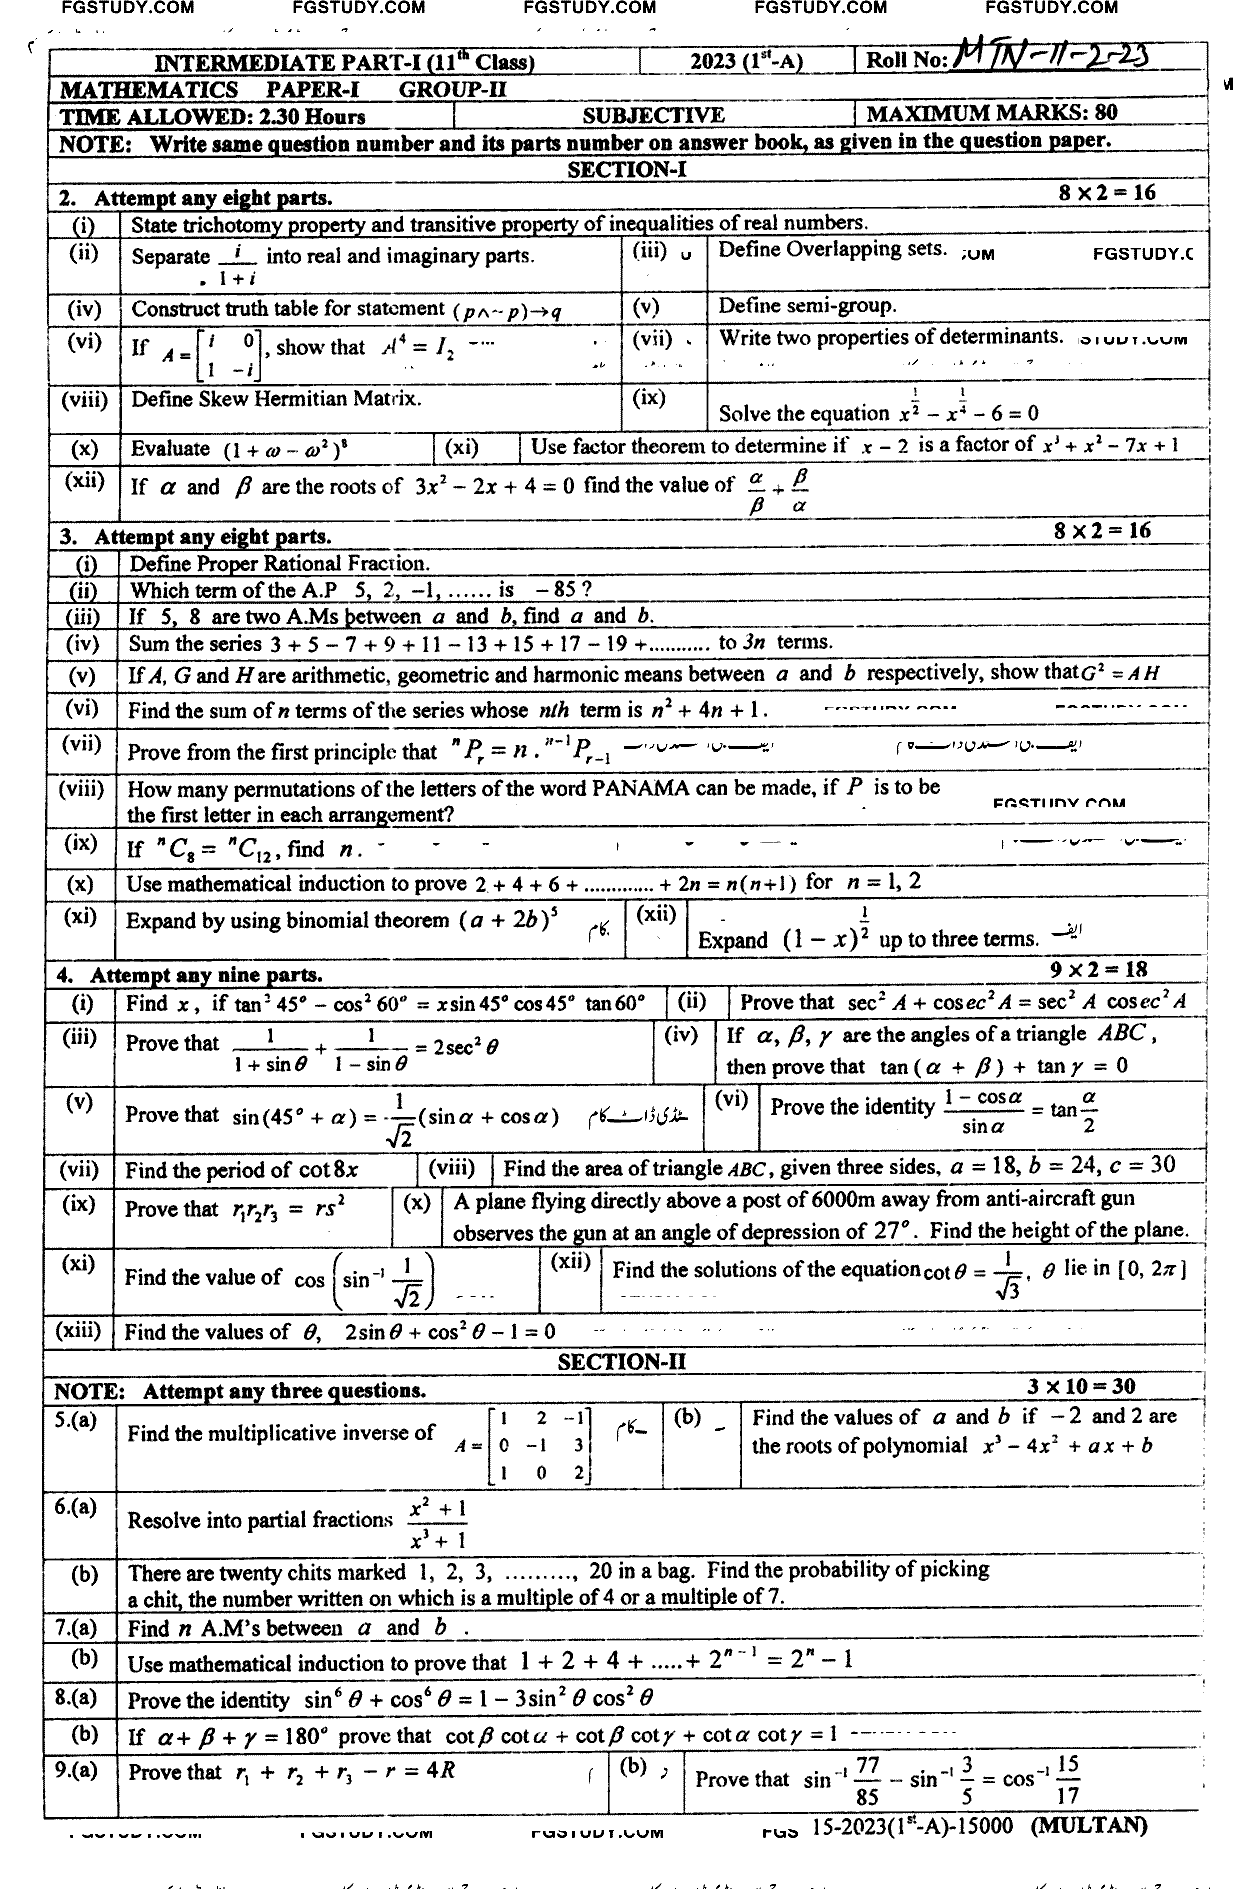 FGSTUDY.COM FGSTUDY.COM FGSTUDY.COM FGSTUDY.COM FGSTUDY.COM
INTERMEDIATE PART-I (11th Class) 2023 (1st-A) Roll No: MTN-11-2-23
MATHEMATICS PAPER-I GROUP-II
TIME ALLOWED: 2.30 Hours SUBJECTIVE MAXIMUM MARKS: 80
NOTE: Write same question number and its parts number on answer book, as given in the question paper.
SECTION-I
2. Attempt any eight parts. 8 × 2 = 16
(i) State trichotomy property and transitive property of inequalities of real numbers.
(ii) Separate i/(1+i) into real and imaginary parts. (iii) Define Overlapping sets.
(iv) Construct truth table for statement (p∧~p)→q (v) Define semi-group.
(vi) If A = [i 0; 1 -i], show that A⁴ = I₂ (vii) Write two properties of determinants.
(viii) Define Skew Hermitian Matrix. (ix) Solve the equation x^(1/2) − x^(1/4) − 6 = 0
(x) Evaluate (1 + ω − ω²)⁸ (xi) Use factor theorem to determine if x − 2 is a factor of x³ + x² − 7x + 1
(xii) If α and β are the roots of 3x² − 2x + 4 = 0 find the value of α/β + β/α
3. Attempt any eight parts. 8 × 2 = 16
(i) Define Proper Rational Fraction.
(ii) Which term of the A.P 5, 2, −1, ...... is − 85 ?
(iii) If 5, 8 are two A.Ms between a and b, find a and b.
(iv) Sum the series 3 + 5 − 7 + 9 + 11 − 13 + 15 + 17 − 19 +........... to 3n terms.
(v) If A, G and H are arithmetic, geometric and harmonic means between a and b respectively, show that G² = AH
(vi) Find the sum of n terms of the series whose nth term is n² + 4n + 1.
(vii) Prove from the first principle that ⁿPᵣ = n . ⁿ⁻¹Pᵣ₋₁
(viii) How many permutations of the letters of the word PANAMA can be made, if P is to be
the first letter in each arrangement? FGSTUDY.COM
(ix) If ⁿC₈ = ⁿC₁₂, find n.
(x) Use mathematical induction to prove 2 + 4 + 6 + ............ + 2n = n(n+1) for n = 1, 2
(xi) Expand by using binomial theorem (a + 2b)⁵ (xii) Expand (1 − x)^(1/2) up to three terms.
4. Attempt any nine parts. 9 × 2 = 18
(i) Find x, if tan² 45° − cos² 60° = x sin 45° cos 45° tan 60° (ii) Prove that sec² A + cosec² A = sec² A cosec² A
(iii) Prove that 1/(1 + sin θ) + 1/(1 − sin θ) = 2 sec² θ (iv) If α, β, γ are the angles of a triangle ABC,
then prove that tan (α + β) + tan γ = 0
(v) Prove that sin(45° + α) = 1/√2 (sin α + cos α) (vi) Prove the identity (1 − cos α)/sin α = tan α/2
(vii) Find the period of cot 8x (viii) Find the area of triangle ABC, given three sides, a = 18, b = 24, c = 30
(ix) Prove that r₁r₂r₃ = rs² (x) A plane flying directly above a post of 6000m away from anti-aircraft gun
observes the gun at an angle of depression of 27°. Find the height of the plane.
(xi) Find the value of cos (sin⁻¹ 1/√2) (xii) Find the solutions of the equation cot θ = 1/√3, θ lie in [0, 2π]
(xiii) Find the values of θ, 2 sin θ + cos² θ − 1 = 0
SECTION-II
NOTE: Attempt any three questions. 3 × 10 = 30
5.(a) Find the multiplicative inverse of A = [1 2 -1; 0 -1 3; 1 0 2] (b) Find the values of a and b if −2 and 2 are
the roots of polynomial x³ − 4x² + ax + b
6.(a) Resolve into partial fractions (x² + 1)/(x³ + 1)
(b) There are twenty chits marked 1, 2, 3, ........., 20 in a bag. Find the probability of picking
a chit, the number written on which is a multiple of 4 or a multiple of 7.
7.(a) Find n A.M's between a and b .
(b) Use mathematical induction to prove that 1 + 2 + 4 + ..... + 2ⁿ⁻¹ = 2ⁿ − 1
8.(a) Prove the identity sin⁶ θ + cos⁶ θ = 1 − 3 sin² θ cos² θ
(b) If α + β + γ = 180° prove that cot β cot α + cot β cot γ + cot α cot γ = 1
9.(a) Prove that r₁ + r₂ + r₃ − r = 4R (b) Prove that sin⁻¹ 77/85 − sin⁻¹ 3/5 = cos⁻¹ 15/17
15-2023(1st-A)-15000 (MULTAN)
FGSTUDY.COM FGSTUDY.COM FGSTUDY.COM